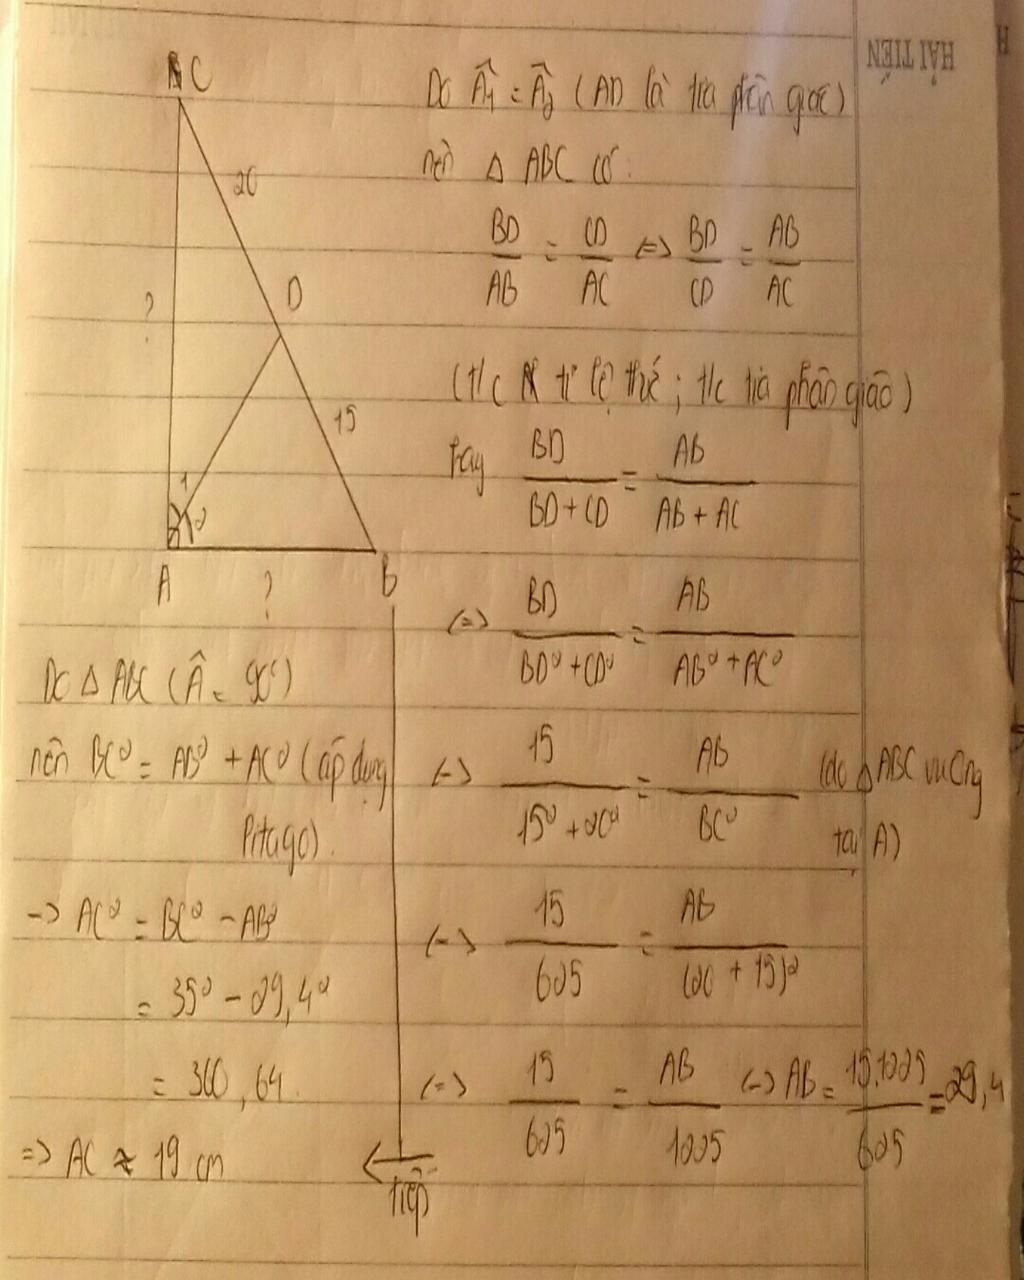 HẢI TIẾN
H
C
20
D
?
15
1
2
A
?
B
Do Â1 = Â2 (AD là tia phân giác)
nên Δ ABC có:
BD/AB = CD/AC <=> BD/CD = AB/AC
(t/c tỉ lệ thức; t/c tia phân giác)
hay BD/(BD+CD) = AB/(AB + AC)
<=> BD/(BD² + CD²) = AB/(AB² + AC²)
<=> 15/(15² + 20²) = AB/BC² (do Δ ABC vuông
tại A)
<=> 15/625 = AB/(20 + 15)²
<=> 15/625 = AB/1225 <=> AB = 15.1225/625 = 29,4
tiếp
Do Δ ABC (Â = 90°)
nên BC² = AB² + AC² (áp dụng
Pitago).
-> AC² = BC² - AB²
= 35² - 29,4²
= 360,64.
=> AC ≈ 19 cm